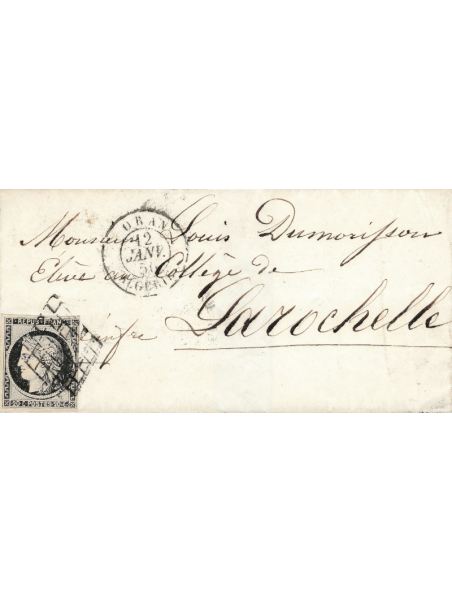 ORAN
12
JANV.
50
ALGÉRIE
Monsieur Louis Dumorisson
Élève au Collège de
Larochelle
REPUB. FRANC.
20 C POSTES 20 C